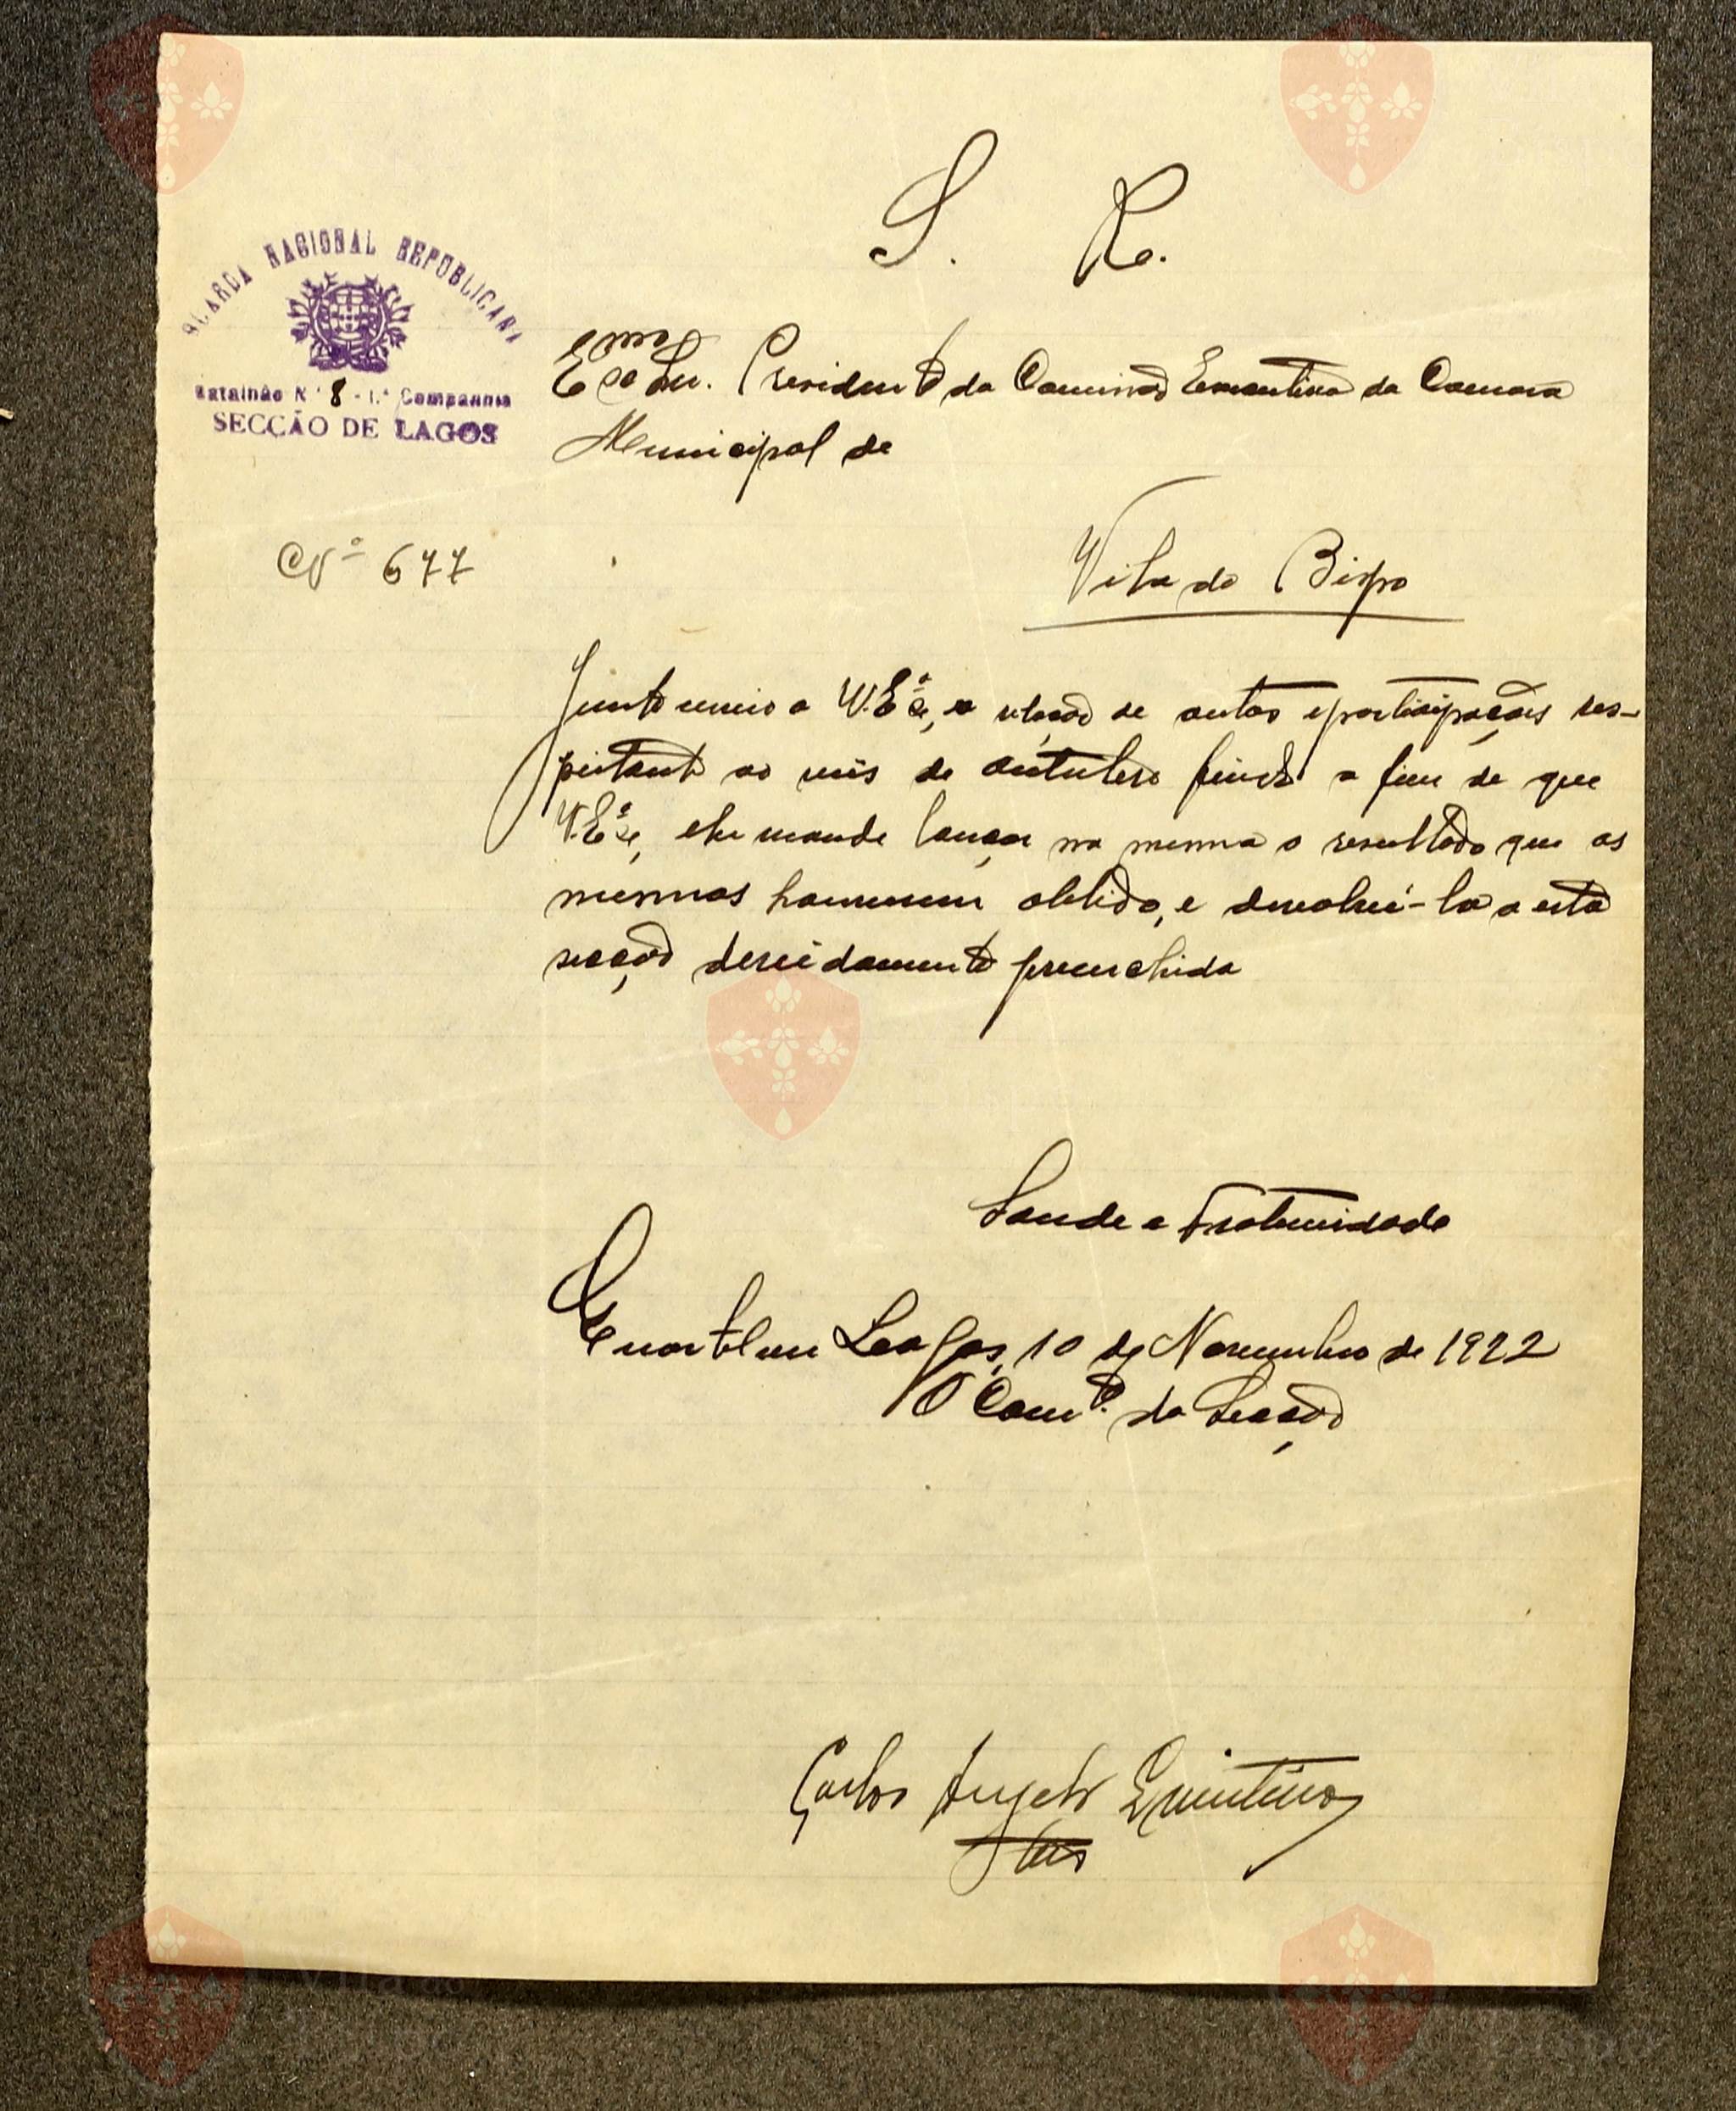 S. R.
GUARDA NACIONAL REPUBLICANA
Batalhão N.º 8 - 1.ª Companhia
SECÇÃO DE LAGOS
Exmo Snr. Presidente da Comissão Executiva da Camara
Municipal de
Nº 677
Vila do Bispo
Junto envio a V. Exª, a relação de autos e participações res-
peitante ao mês de outubro findo a fim de que
V. Exª, mande lançar na mesma o resultado que as
mesmas houverem obtido, e devolvê-la a esta
secção devidamente preenchida
Saude e Fraternidade
Quartel em Lagos, 10 de Novembro de 1922
O Comte. da Secção
Carlos Angelo Quintino